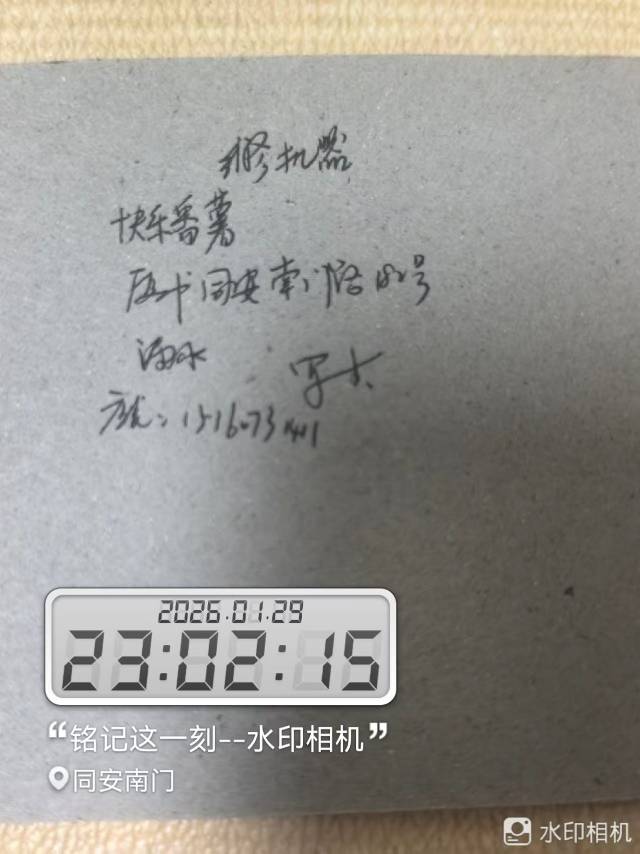 修机器
快乐番薯
同安南门路182号
漏水
电话：15160731411
2026.01.29
23:02:15
“铭记这一刻--水印相机”
同安南门
水印相机